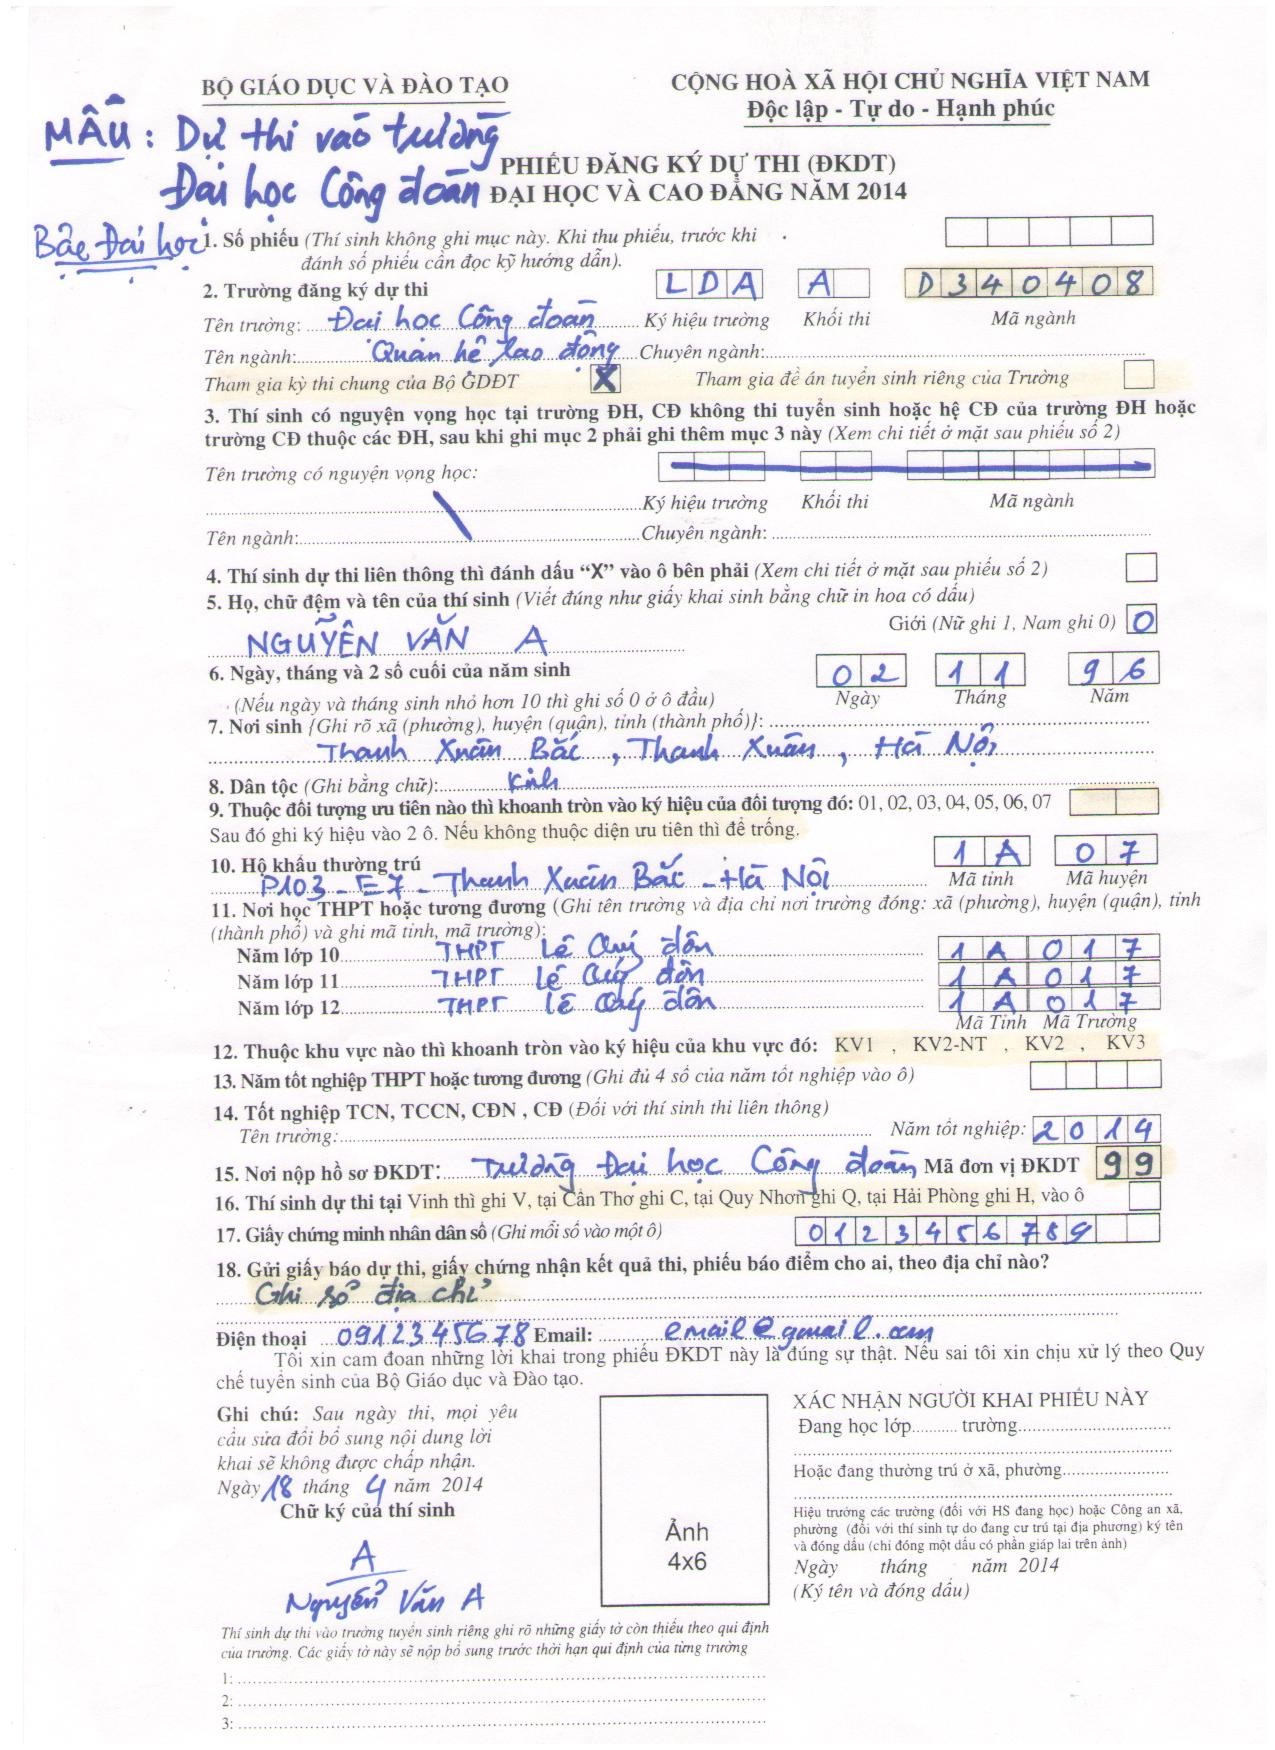 BỘ GIÁO DỤC VÀ ĐÀO TẠO
CỘNG HOÀ XÃ HỘI CHỦ NGHĨA VIỆT NAM
Độc lập - Tự do - Hạnh phúc
MẪU: Dự thi vào trường
Đại học Công đoàn
Bậc Đại học
PHIẾU ĐĂNG KÝ DỰ THI (ĐKDT)
ĐẠI HỌC VÀ CAO ĐẲNG NĂM 2014
1. Số phiếu (Thí sinh không ghi mục này. Khi thu phiếu, trước khi
đánh số phiếu cần đọc kỹ hướng dẫn).
2. Trường đăng ký dự thi LDA A D340408
Tên trường: Đại học Công đoàn Ký hiệu trường Khối thi Mã ngành
Tên ngành: Quan hệ lao động Chuyên ngành:
Tham gia kỳ thi chung của Bộ GDĐT X Tham gia đề án tuyển sinh riêng của Trường
3. Thí sinh có nguyện vọng học tại trường ĐH, CĐ không thi tuyển sinh hoặc hệ CĐ của trường ĐH hoặc
trường CĐ thuộc các ĐH, sau khi ghi mục 2 phải ghi thêm mục 3 này (Xem chi tiết ở mặt sau phiếu số 2)
Tên trường có nguyện vọng học:
Ký hiệu trường Khối thi Mã ngành
Tên ngành: Chuyên ngành:
4. Thí sinh dự thi liên thông thì đánh dấu “X” vào ô bên phải (Xem chi tiết ở mặt sau phiếu số 2)
5. Họ, chữ đệm và tên của thí sinh (Viết đúng như giấy khai sinh bằng chữ in hoa có dấu)
NGUYỄN VĂN A Giới (Nữ ghi 1, Nam ghi 0) 0
6. Ngày, tháng và 2 số cuối của năm sinh 02 11 96
(Nếu ngày và tháng sinh nhỏ hơn 10 thì ghi số 0 ở ô đầu) Ngày Tháng Năm
7. Nơi sinh {Ghi rõ xã (phường), huyện (quận), tỉnh (thành phố)}:
Thanh Xuân Bắc, Thanh Xuân, Hà Nội
8. Dân tộc (Ghi bằng chữ): Kinh
9. Thuộc đối tượng ưu tiên nào thì khoanh tròn vào ký hiệu của đối tượng đó: 01, 02, 03, 04, 05, 06, 07
Sau đó ghi ký hiệu vào 2 ô. Nếu không thuộc diện ưu tiên thì để trống.
10. Hộ khẩu thường trú 1A 07
P103 - E7 - Thanh Xuân Bắc - Hà Nội Mã tỉnh Mã huyện
11. Nơi học THPT hoặc tương đương (Ghi tên trường và địa chỉ nơi trường đóng: xã (phường), huyện (quận), tỉnh
(thành phố) và ghi mã tỉnh, mã trường):
Năm lớp 10 THPT Lê Quý đôn 1A 017
Năm lớp 11 THPT Lê Quý đôn 1A 017
Năm lớp 12 THPT Lê Quý đôn 1A 017
Mã Tỉnh Mã Trường
12. Thuộc khu vực nào thì khoanh tròn vào ký hiệu của khu vực đó: KV1 , KV2-NT , KV2 , KV3
13. Năm tốt nghiệp THPT hoặc tương đương (Ghi đủ 4 số của năm tốt nghiệp vào ô)
14. Tốt nghiệp TCN, TCCN, CĐN , CĐ (Đối với thí sinh thi liên thông)
Tên trường: Năm tốt nghiệp: 2014
15. Nơi nộp hồ sơ ĐKDT: Trường Đại học Công đoàn Mã đơn vị ĐKDT 99
16. Thí sinh dự thi tại Vinh thì ghi V, tại Cần Thơ ghi C, tại Quy Nhơn ghi Q, tại Hải Phòng ghi H, vào ô
17. Giấy chứng minh nhân dân số (Ghi mỗi số vào một ô) 0123456789
18. Gửi giấy báo dự thi, giấy chứng nhận kết quả thi, phiếu báo điểm cho ai, theo địa chỉ nào?
Ghi số địa chỉ
Điện thoại 0912345678 Email: email@gmail.com
Tôi xin cam đoan những lời khai trong phiếu ĐKDT này là đúng sự thật. Nếu sai tôi xin chịu xử lý theo Quy
chế tuyển sinh của Bộ Giáo dục và Đào tạo.
Ghi chú: Sau ngày thi, mọi yêu
cầu sửa đổi bổ sung nội dung lời
khai sẽ không được chấp nhận.
Ngày 18 tháng 4 năm 2014
Chữ ký của thí sinh
A
Nguyễn Văn A
Ảnh
4x6
XÁC NHẬN NGƯỜI KHAI PHIẾU NÀY
Đang học lớp........... trường
Hoặc đang thường trú ở xã, phường
Hiệu trưởng các trường (đối với HS đang học) hoặc Công an xã,
phường (đối với thí sinh tự do đang cư trú tại địa phương) ký tên
và đóng dấu (chỉ đóng một dấu có phần giáp lai trên ảnh)
Ngày tháng năm 2014
(Ký tên và đóng dấu)
Thí sinh dự thi vào trường tuyển sinh riêng ghi rõ những giấy tờ còn thiếu theo qui định
của trường. Các giấy tờ này sẽ nộp bổ sung trước thời hạn qui định của từng trường
1:
2:
3: